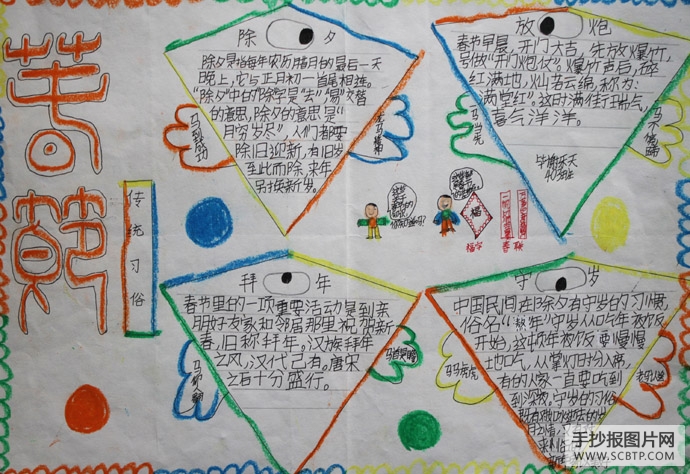 春节
传统习俗
除夕
除夕是指每年农历腊月的最后一天
晚上,它与正月初一首尾相连。
"除夕"中的"除"字是"去;易;交替
的意思,除夕的意思是"
月穷岁尽",人们都要
除旧迎新,有旧岁
至此而除,来年
另换新岁。
马到成功
放炮
春节早晨,开门大吉,先放爆竹,
号做"开门炮仗"。爆竹声后,碎
红满地,灿若云锦,称为:
满堂红"。这时满街瑞气,
喜气洋洋。
马当先
马不停蹄
福
福字
春联
拜年
春节里的一项重要活动是到亲
朋好友家和邻居那里祝贺新
春,旧称拜年。汉族拜年
之风,汉代已有。唐宋
之后十分盛行。
守岁
中国民间在除夕有守岁的习惯,
俗名"熬年"守岁从吃年夜饭
开始,这顿年夜饭要慢慢
地吃,从掌灯时分入席,
有的人家一直要吃到
到深夜。守岁的习俗
马马虎虎
手抄报图片网
WWW.SCBTP.COM